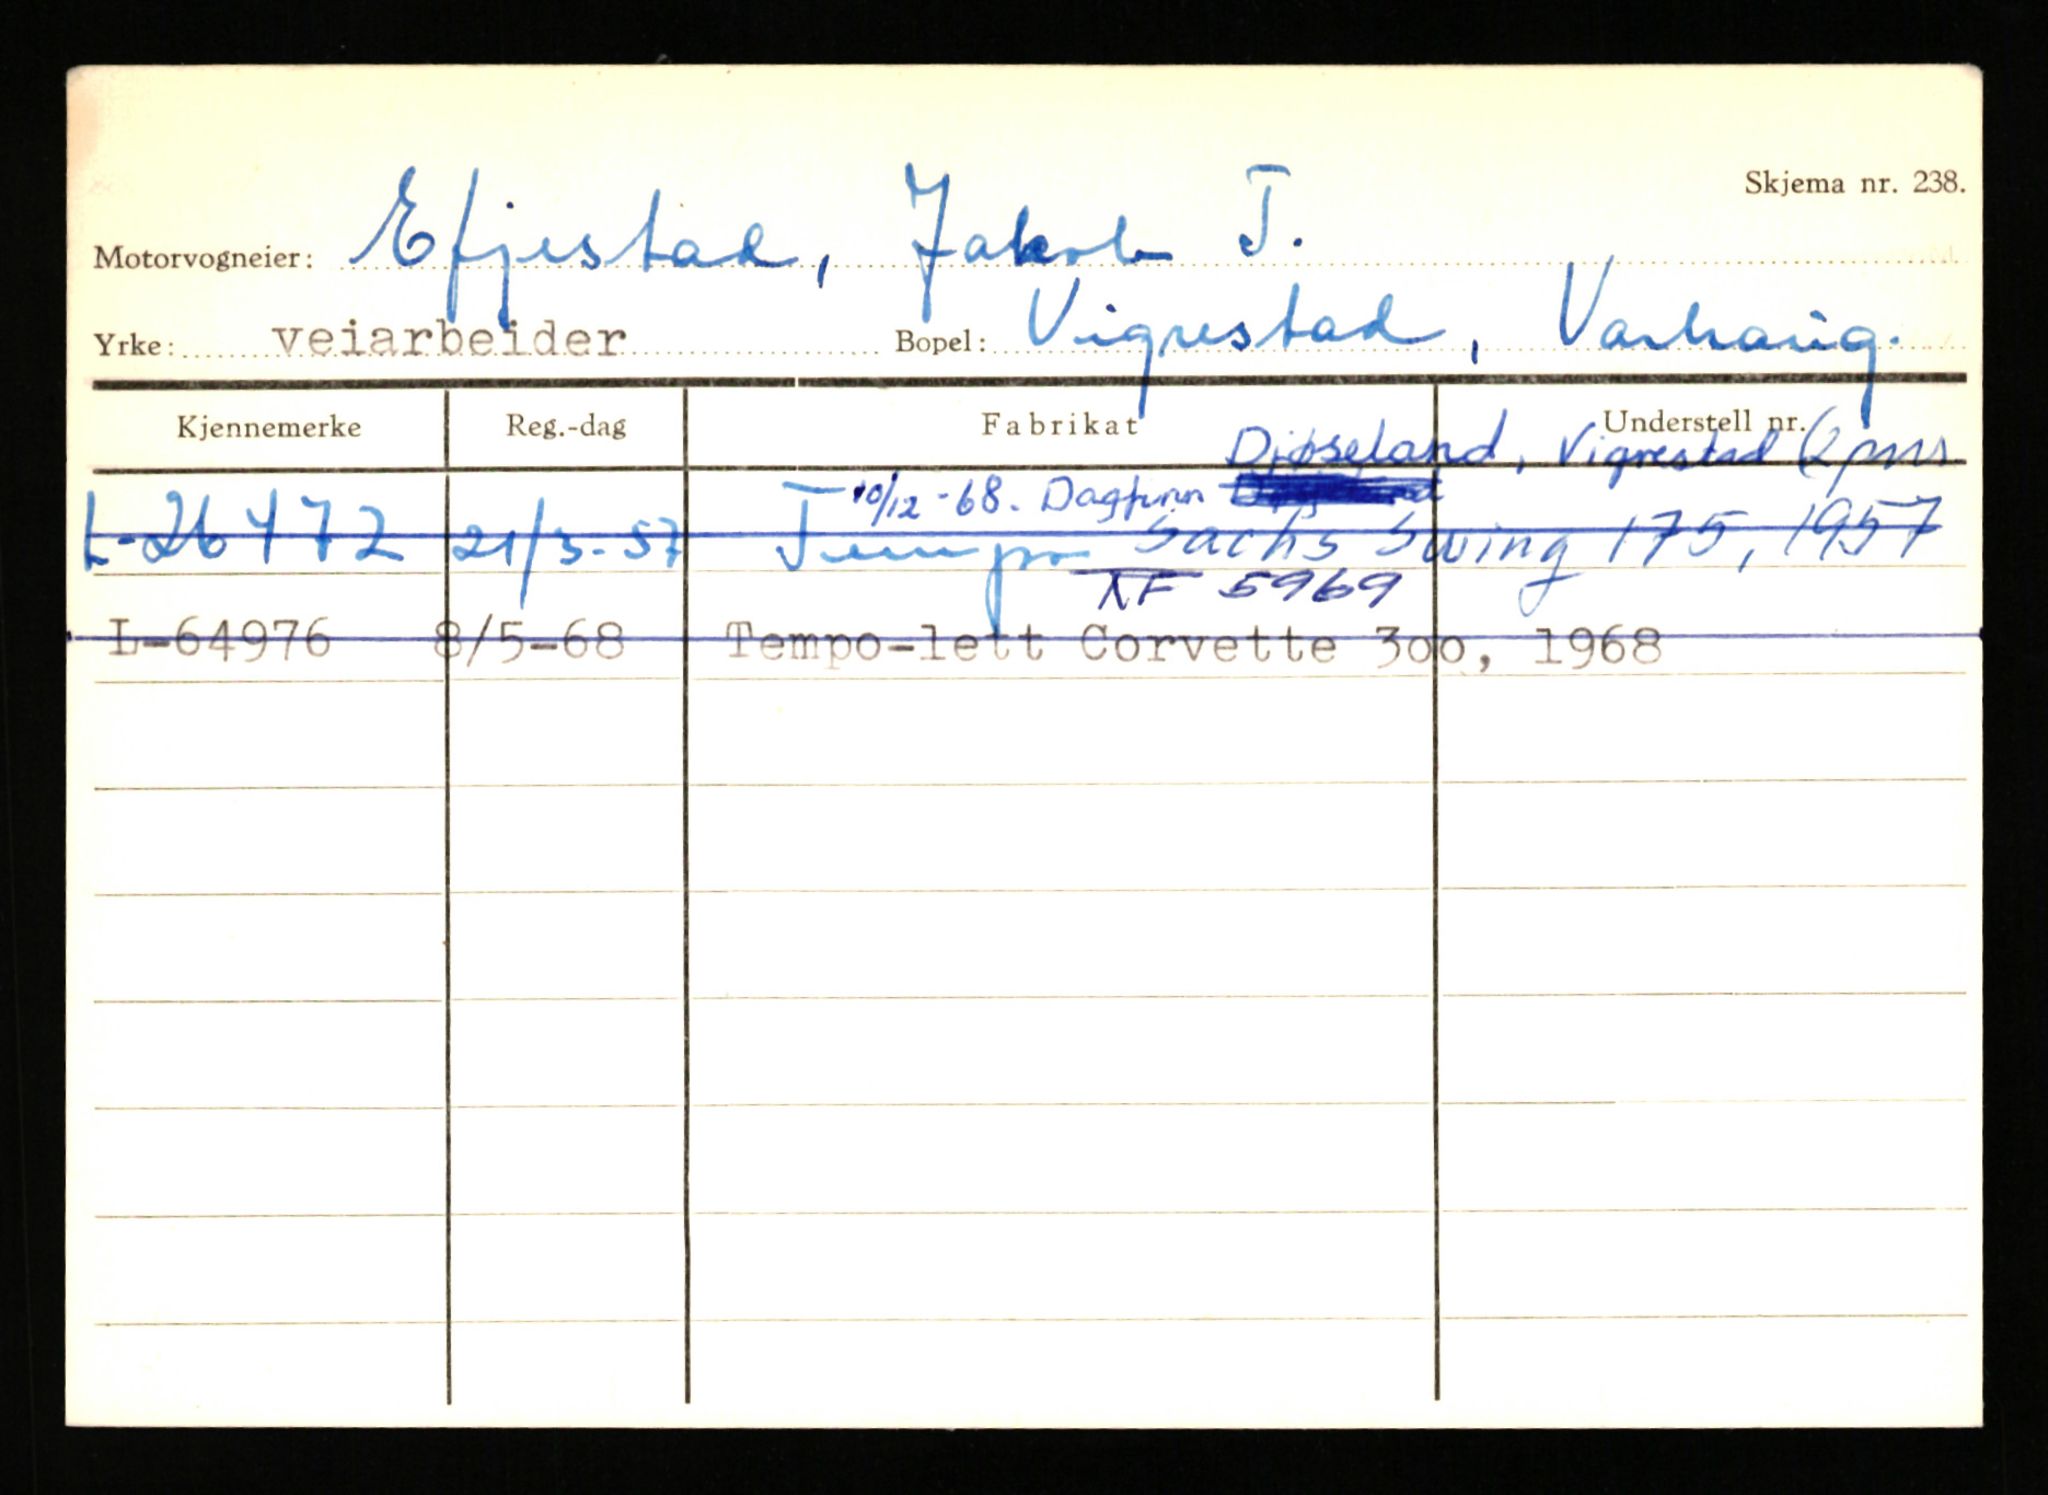 Skjema nr. 238.
Motorvogneier: Efjestad, Jakob T.
Yrke: veiarbeider Bopel: Vigrestad, Varhaug.
Kjennemerke Reg.-dag Fabrikat Understell nr.
Djøseland, Vigrestad
10/12-68. Dagfinn
L-26472 21/3-57 Tempo Sachs Swing 175, 1957
KF 5969
L-64976 8/5-68 Tempo-lett Corvette 3oo, 1968